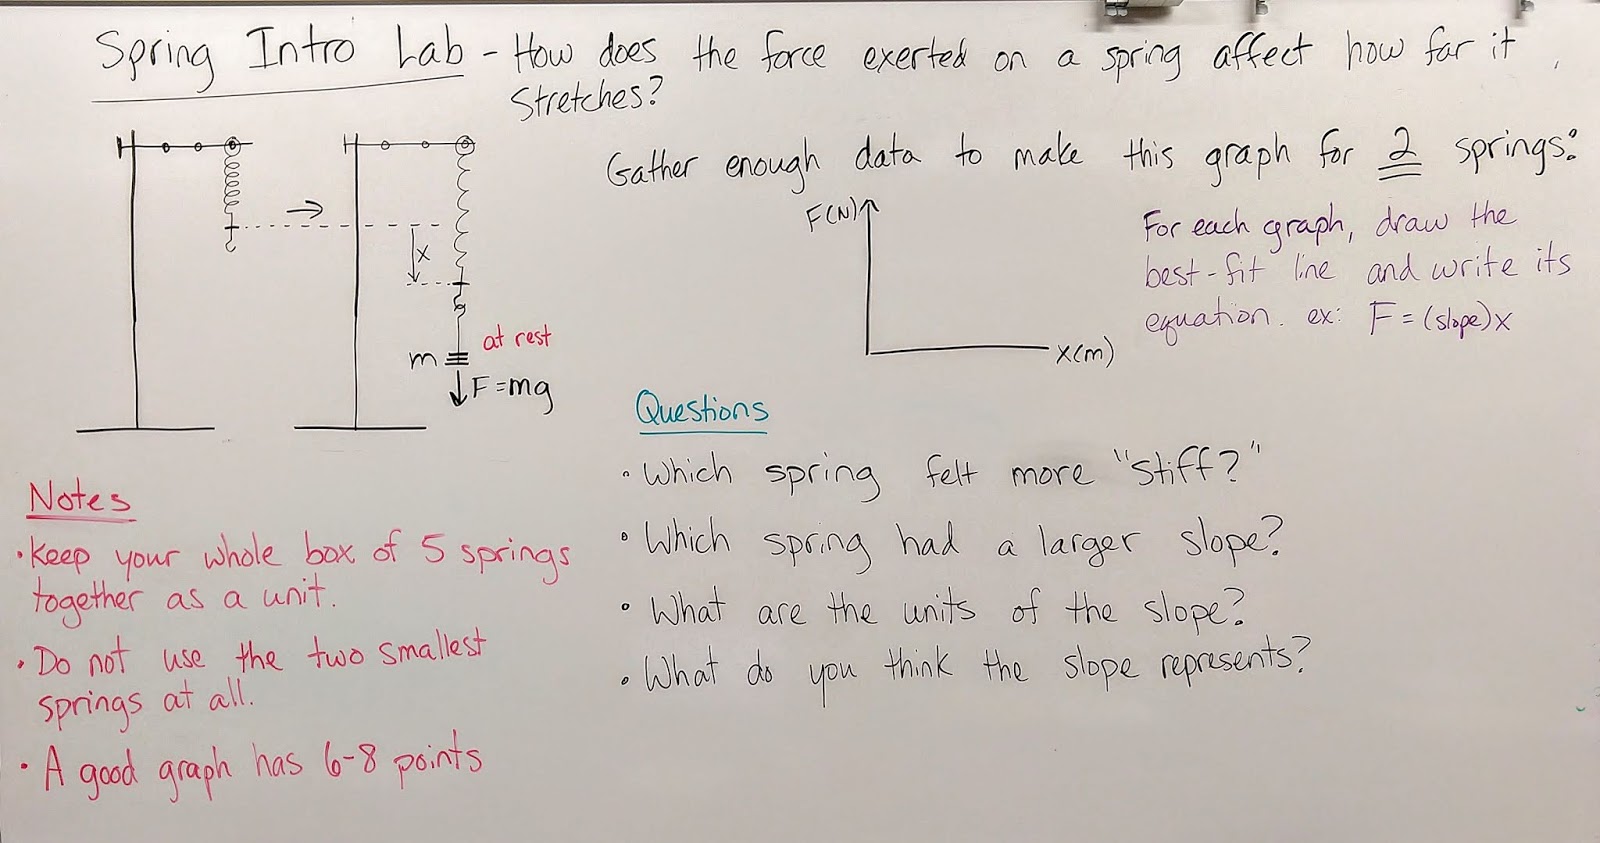 Spring Intro Lab - How does the force exerted on a spring affect how far it
stretches?
Gather enough data to make this graph for 2 springs:
F(N)
x(m)
For each graph, draw the
best-fit line and write its
equation. ex: F = (slope)x
x
at rest
m
F=mg
Notes
• Keep your whole box of 5 springs
together as a unit.
• Do not use the two smallest
springs at all.
• A good graph has 6-8 points
Questions
• Which spring felt more "stiff?"
• Which spring had a larger slope?
• What are the units of the slope?
• What do you think the slope represents?